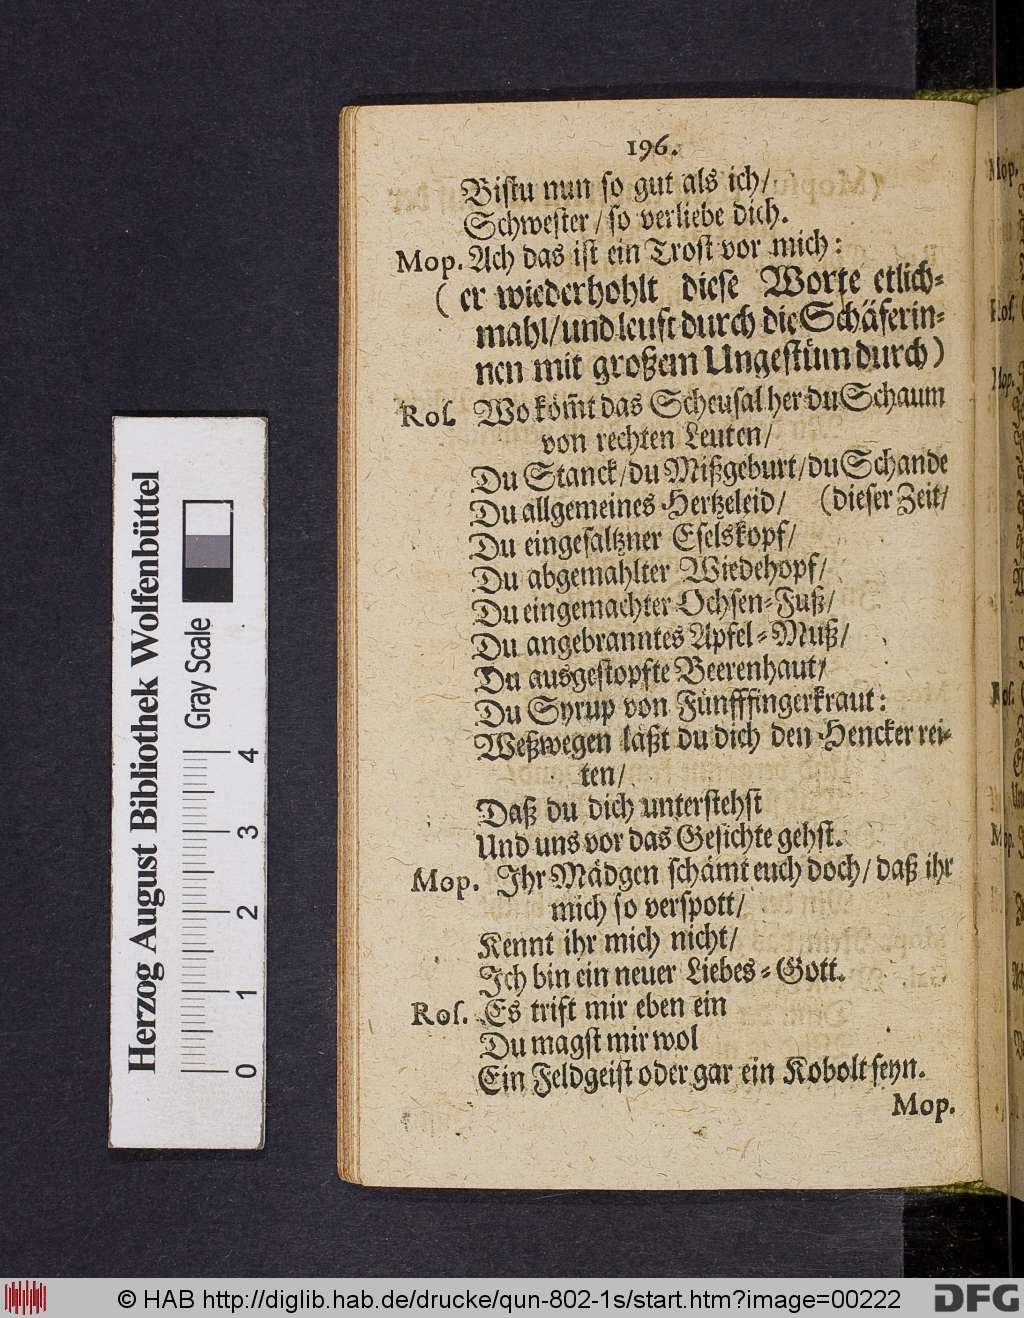 196.
Bistu nun so gut als ich/
Schwester/so verliebe dich.
Mop. Ach das ist ein Trost vor mich:
(er wiederhohlt diese Worte etlich-
mahl/und leuft durch die Schäferin-
nen mit großem Ungestüm durch)
Ros. Wo kom̃t das Scheusal her du Schaum
von rechten Leuten/
Du Stanck/du Mißgeburt/du Schande
Du allgemeines Hertzeleid/ (dieser Zeit/
Du eingesaltzner Eselskopf/
Du abgemahlter Wiedehopf/
Du eingemachter Ochsen-Fuß/
Du angebranntes Apfel-Muß/
Du ausgestopfte Beerenhaut/
Du Syrup von Fünfffingerkraut:
Weßwegen läßt du dich den Hencker rei-
ten/
Daß du dich unterstehst
Und uns vor das Gesichte gehst.
Mop. Ihr Mädgen schämt euch doch/daß ihr
mich so verspott/
Kennt ihr mich nicht/
Ich bin ein neuer Liebes-Gott.
Ros. Es trift mir eben ein
Du magst mir wol
Ein Feldgeist oder gar ein Kobolt seyn.
Mop.
Herzog August Bibliothek Wolfenbüttel
Gray Scale
0 1 2 3 4
© HAB http://diglib.hab.de/drucke/qun-802-1s/start.htm?image=00222
DFG